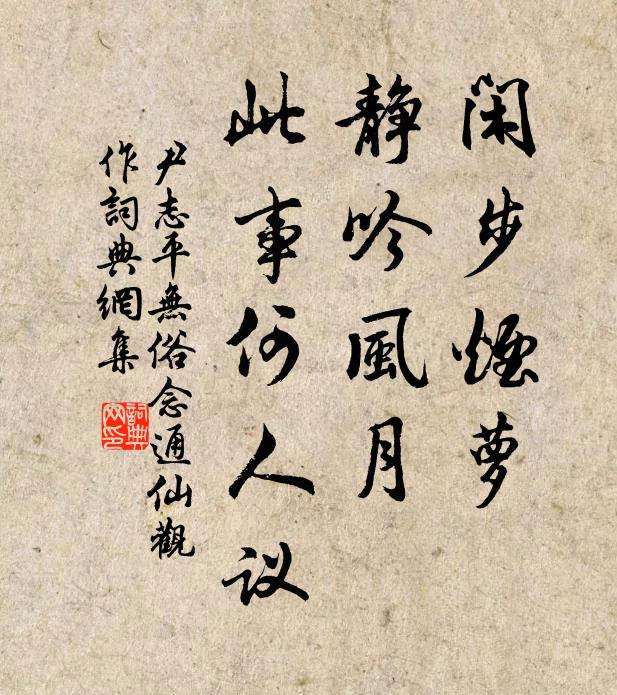 闲步烟萝
静吟風月
此事何人议
尹志平無俗念通仙觀
作詞典網集
詞典
网印